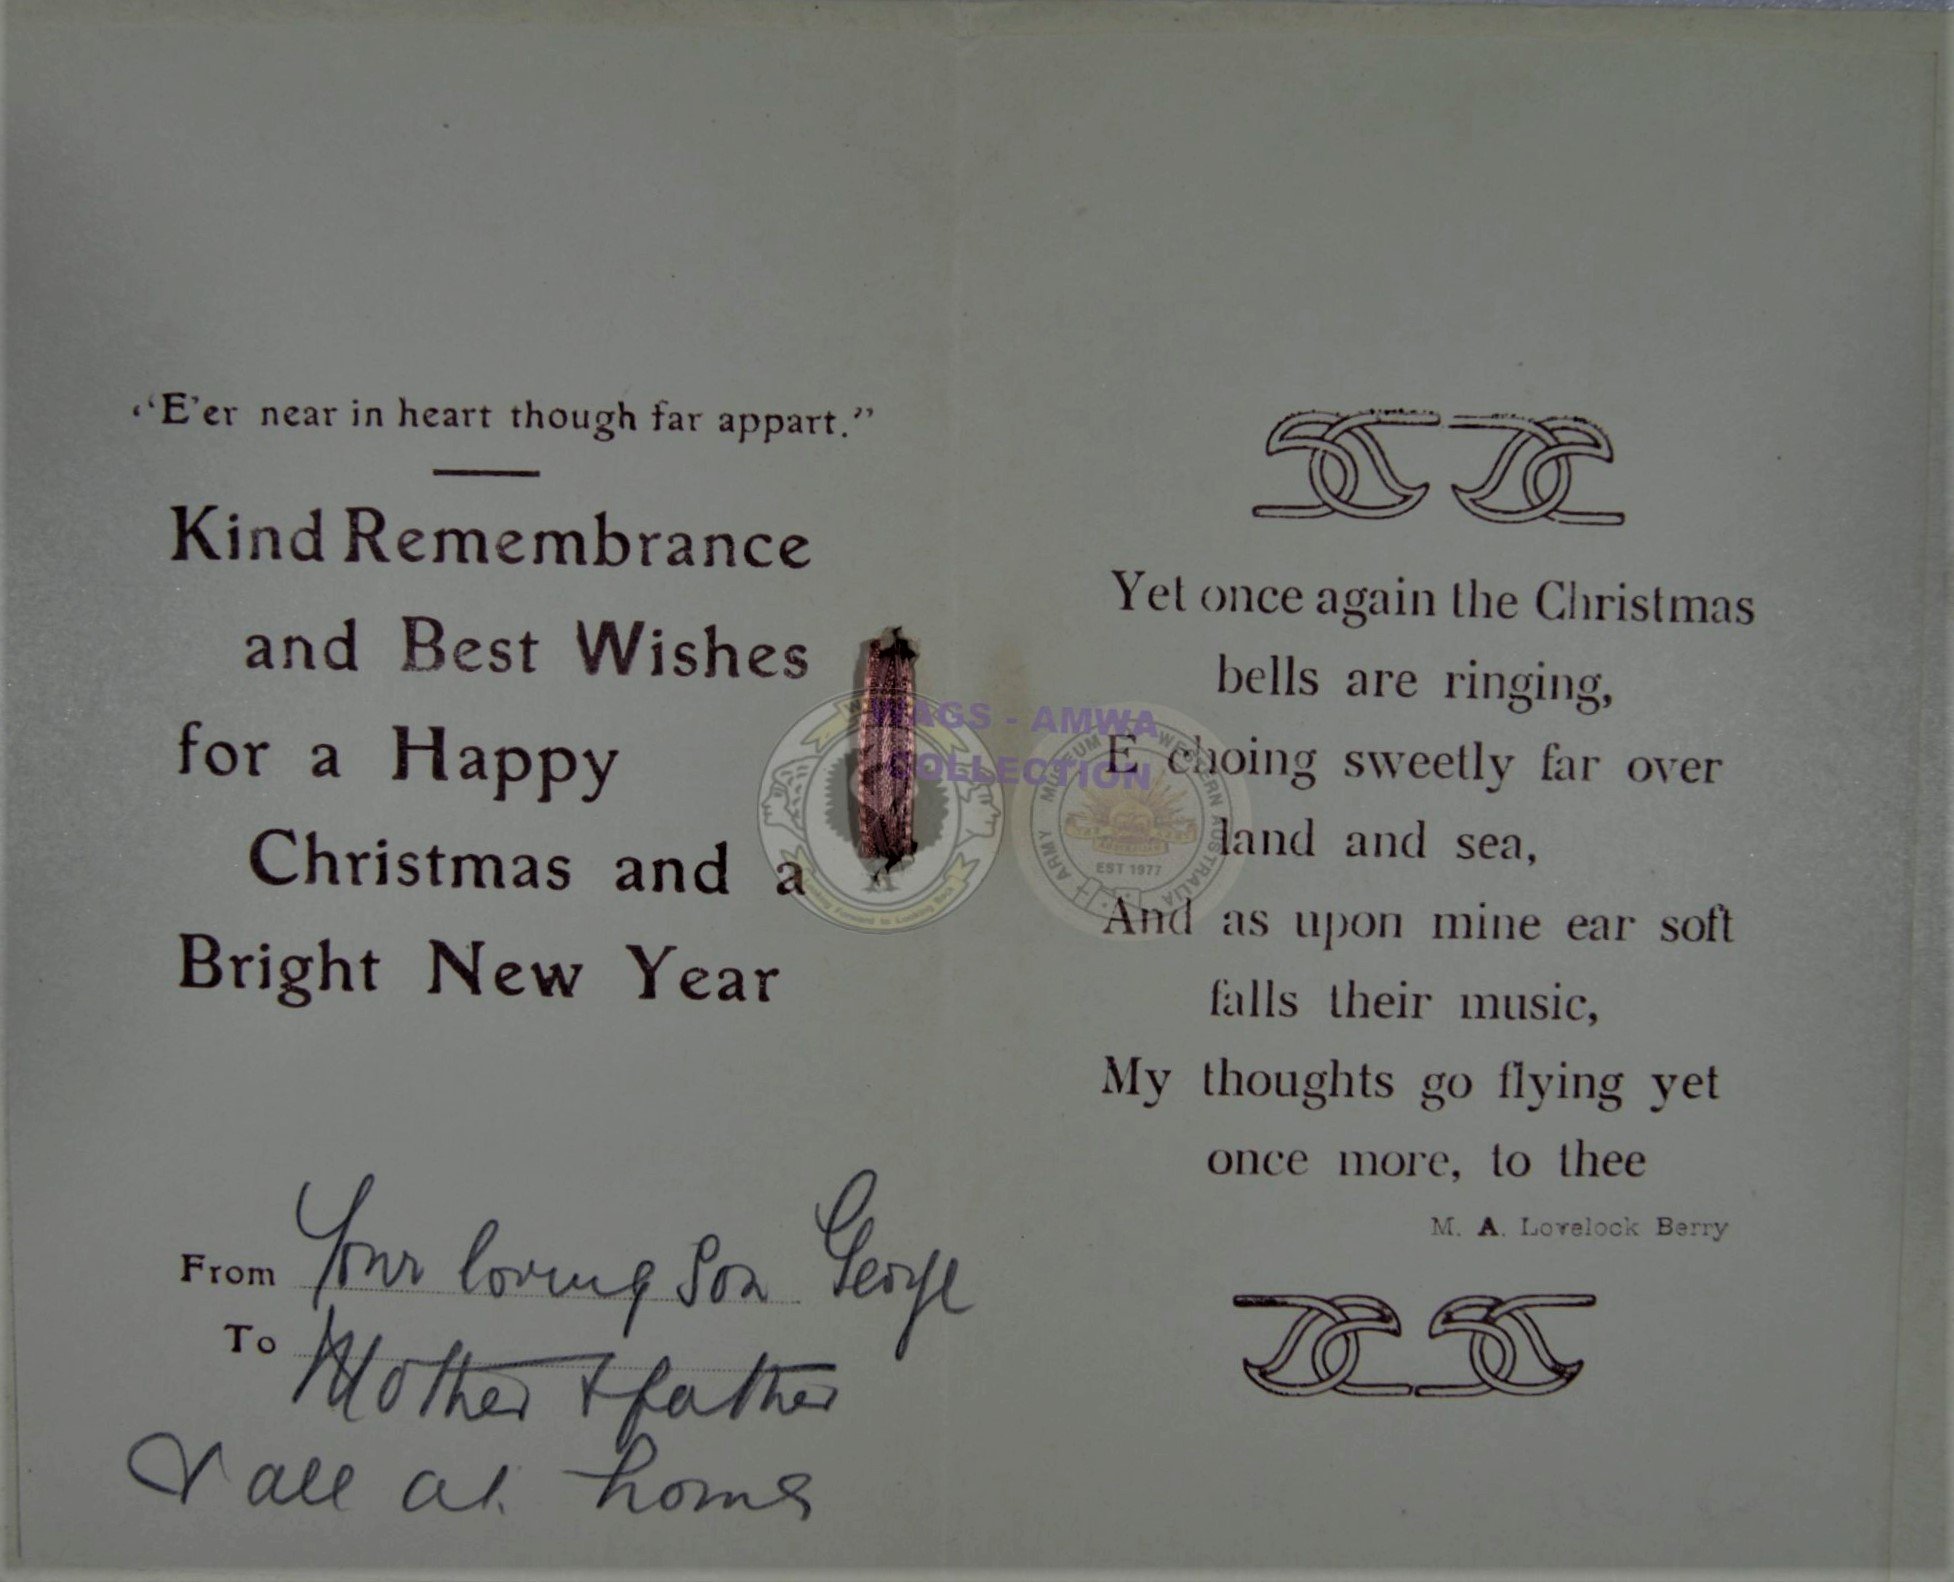 "E'er near in heart though far appart."
Kind Remembrance
and Best Wishes
for a Happy
Christmas and a
Bright New Year
From Your loving Son George
To Mother & father
& all at home
Yet once again the Christmas
bells are ringing,
E choing sweetly far over
land and sea,
And as upon mine ear soft
falls their music,
My thoughts go flying yet
once more, to thee
M. A. Lovelock Berry
WAGS - AMWA
COLLECTION
ARMY MUSEUM WESTERN AUSTRALIA
EST 1977
Looking Back